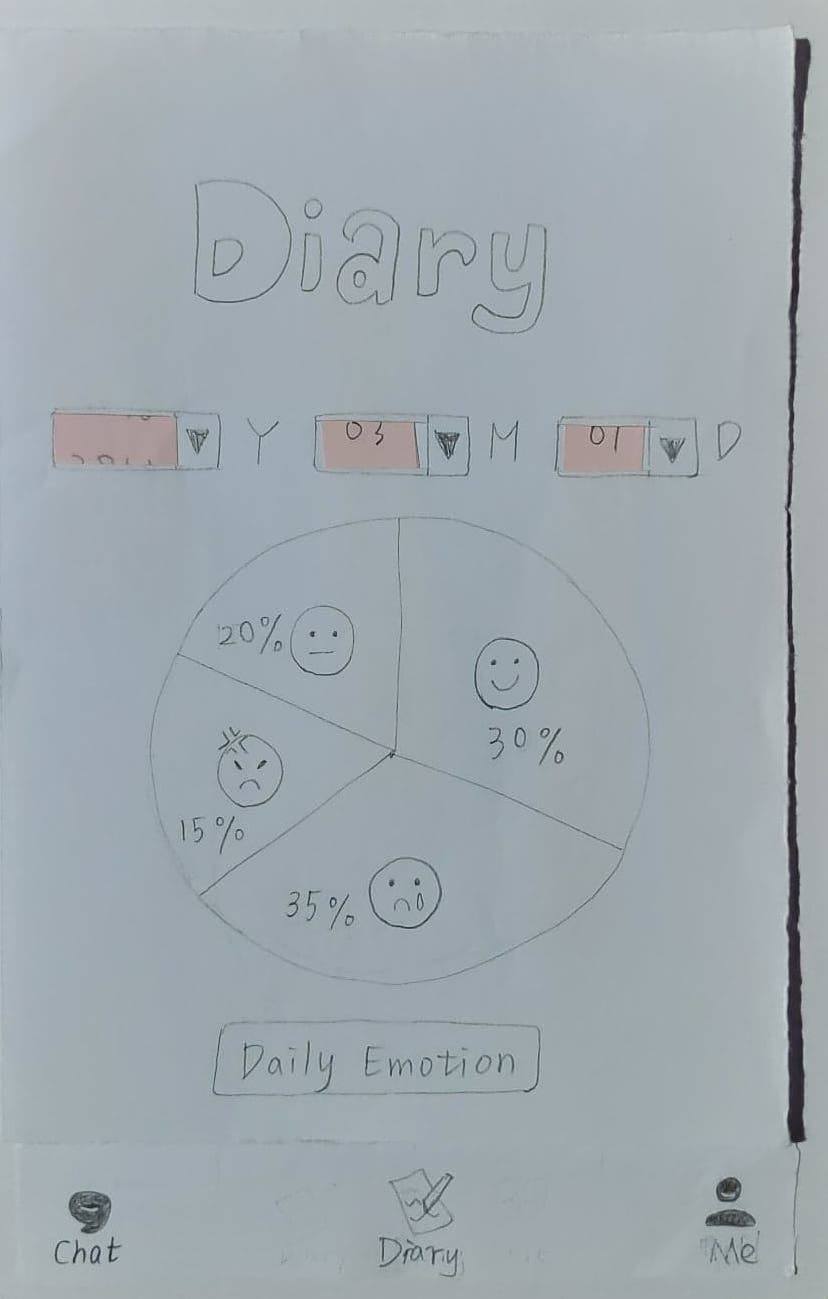 Diary
Y 03 M 01 D
20%
30%
15%
35%
Daily Emotion
Chat Diary Me